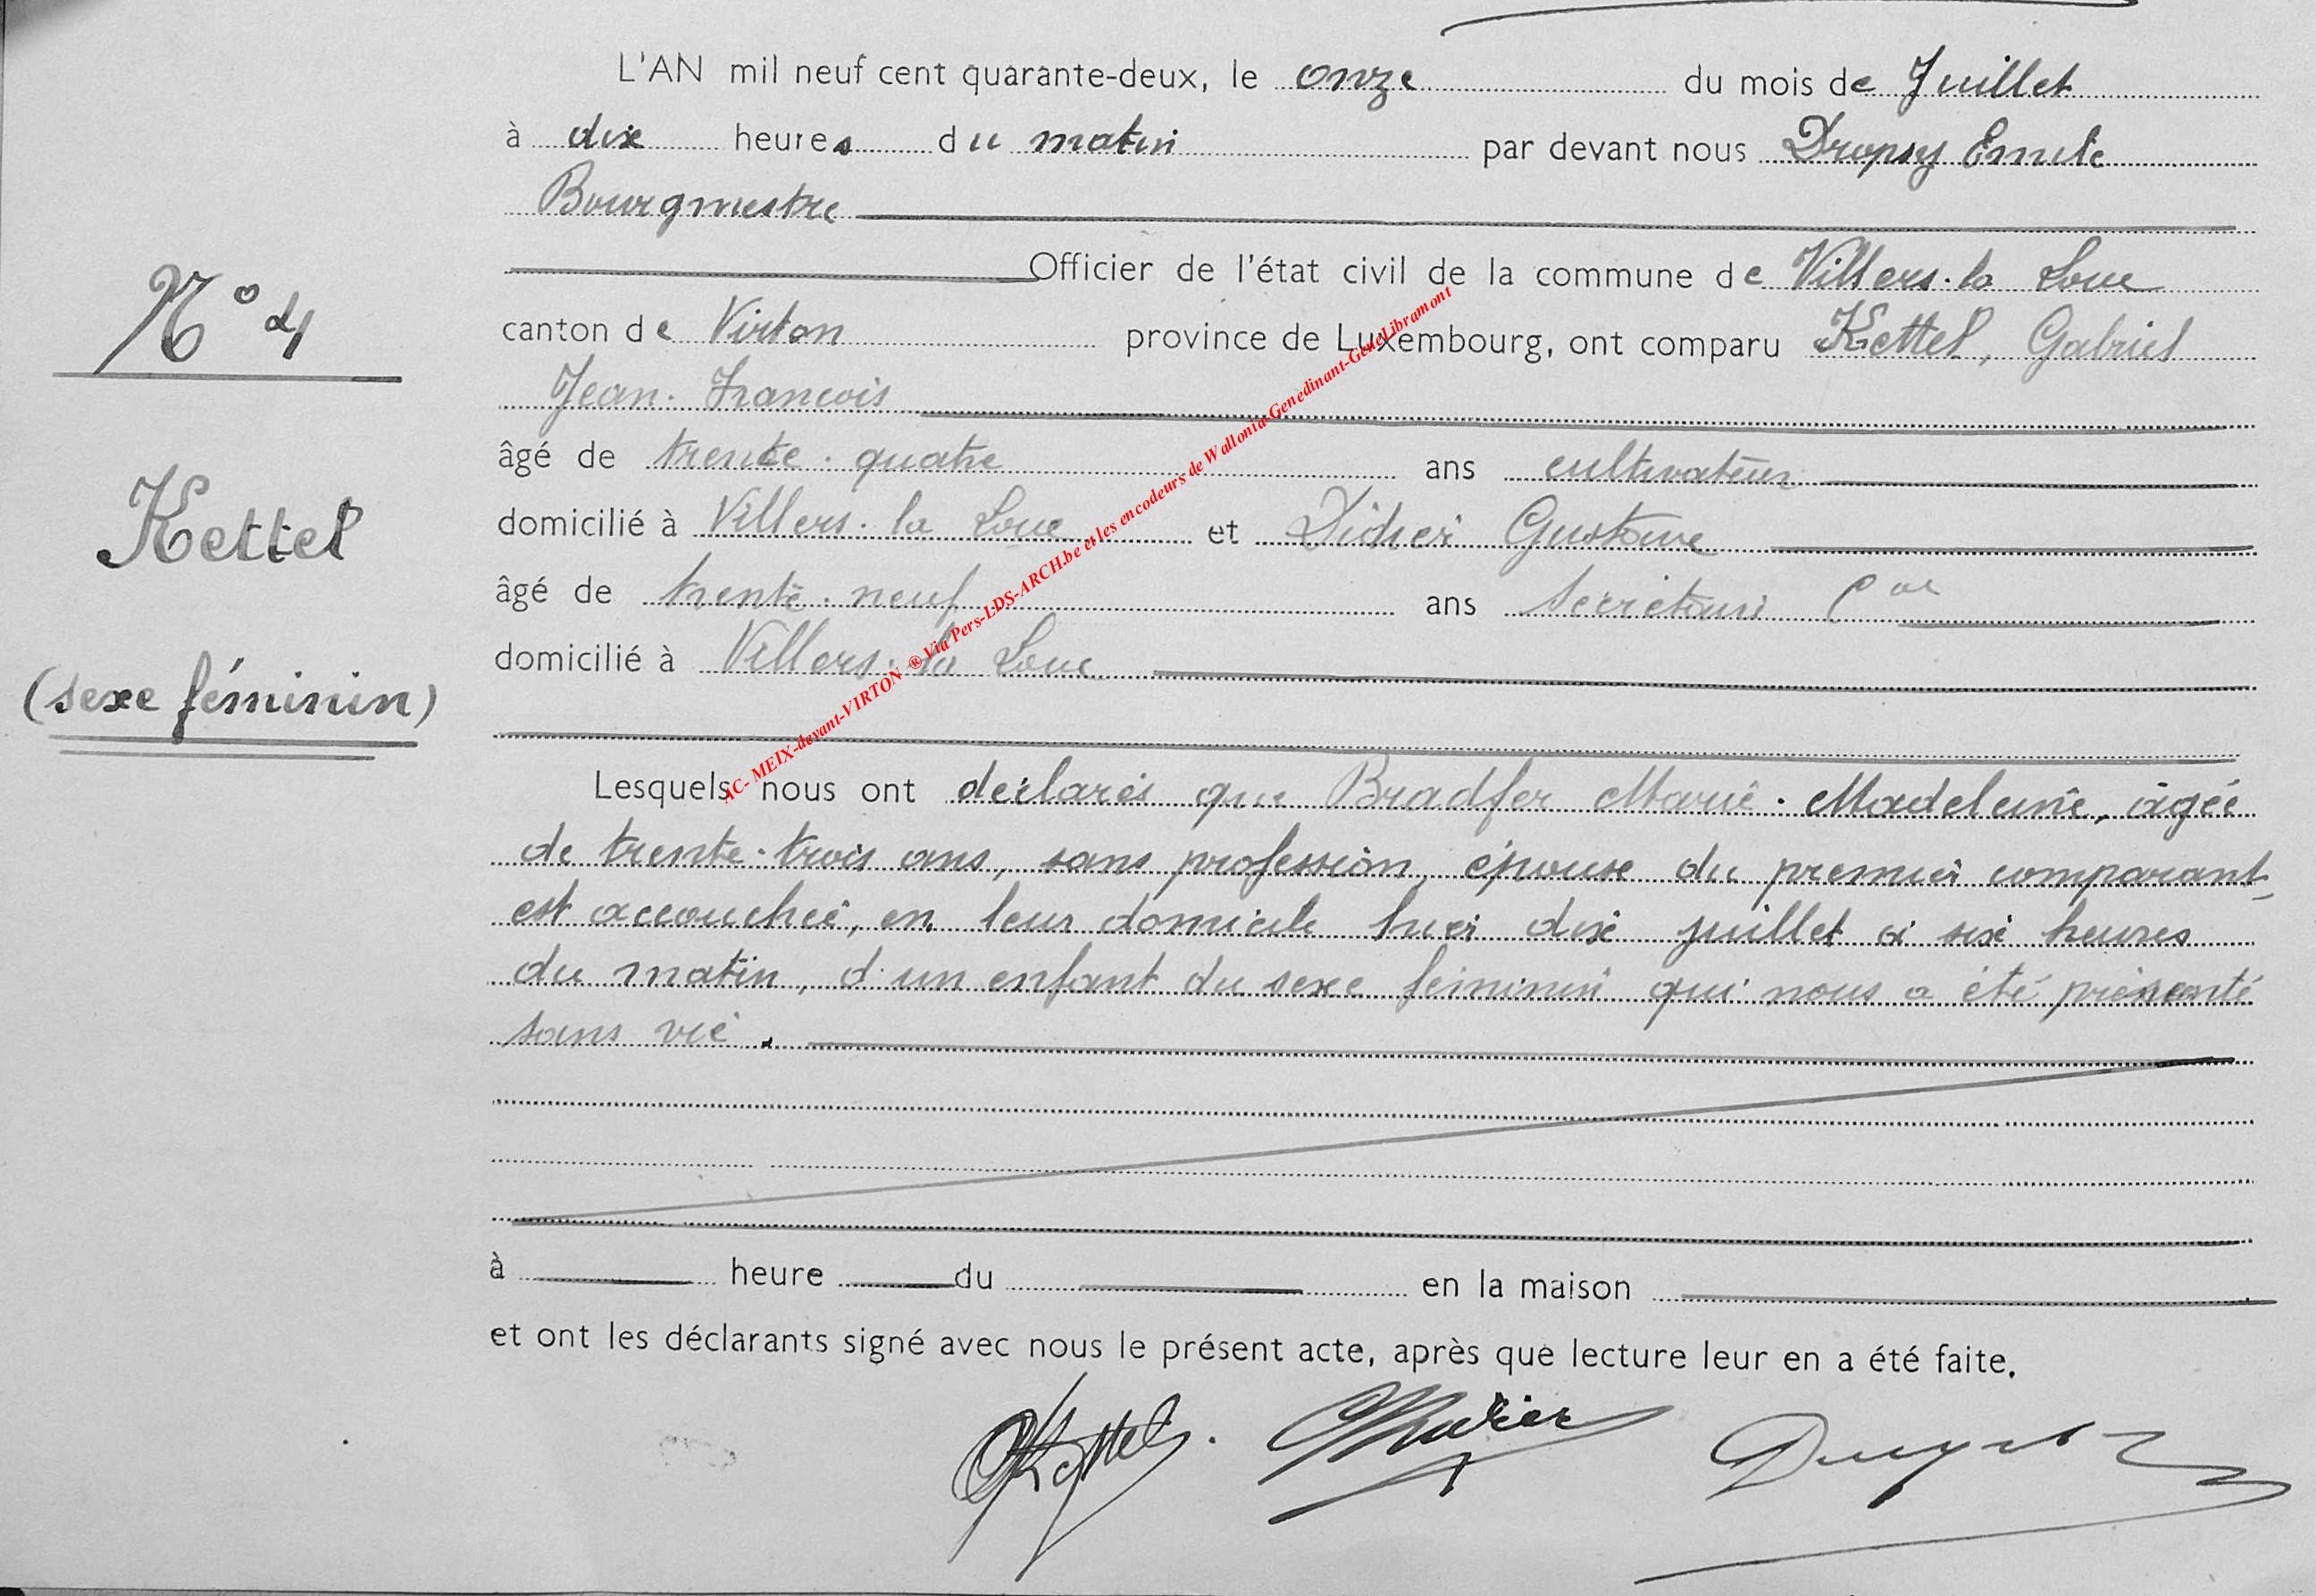 L'AN mil neuf cent quarante-deux, le onze du mois de Juillet
à dix heures du matin par devant nous Dropsy Emile
Bourgmestre
Officier de l'état civil de la commune de Villers-la Loue
N° 4
canton de Virton province de Luxembourg, ont comparu Kettel, Gabriel
Jean-François
âgé de trente-quatre ans cultivateur
Kettel
domicilié à Villers-la Loue et Didier Gustave
âgé de trente-neuf ans secrétaire Cal
domicilié à Villers-la Loue
(sexe féminin)
AC- MEIX-devant-VIRTON ® Via Pers-LDS-ARCH.be et les encodeurs de Wallonia-Genedinant-GeneLibramont
Lesquels nous ont déclarés que Bradfer Marie-Madeleine, âgée
de trente-trois ans, sans profession, épouse du premier comparant
est accouchée, en leur domicile hier dix juillet à six heures
du matin, d'un enfant du sexe féminin qui nous a été présenté
sans vie.
à heure du en la maison
et ont les déclarants signé avec nous le présent acte, après que lecture leur en a été faite.
Kettel. Didier Dropsy